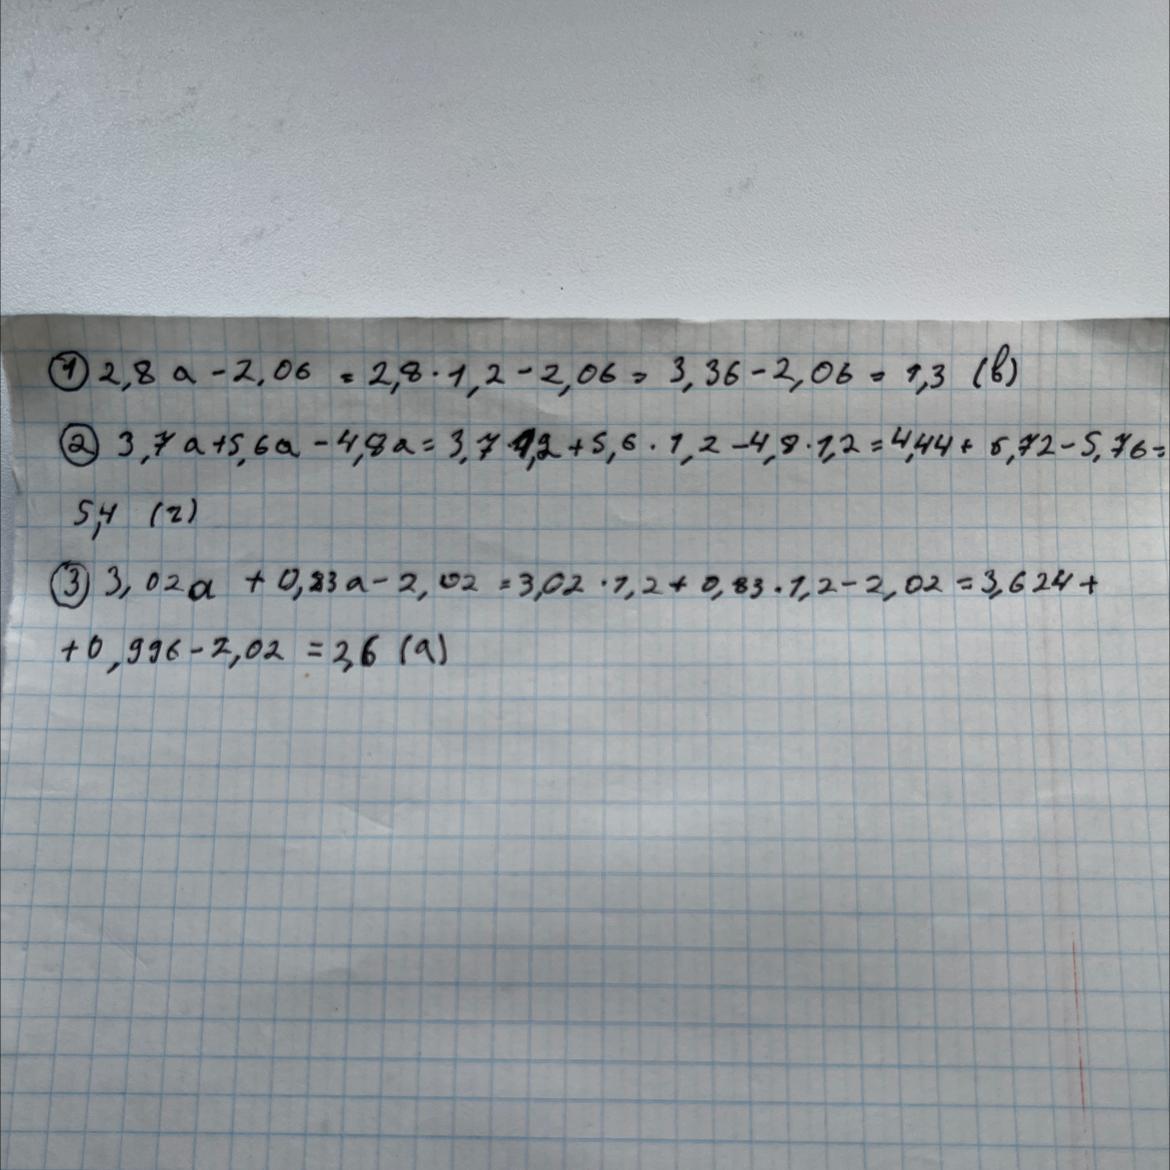 ① 2,8 а - 2,06 = 2,8 · 1,2 - 2,06 = 3,36 - 2,06 = 1,3 (в)
② 3,7 а + 5,6а - 4,8а = 3,7 · 1,2 + 5,6 · 1,2 - 4,8 · 1,2 = 4,44 + 6,72 - 5,76 =
5,4 (г)
③ 3,02а + 0,83а - 2,02 = 3,02 · 1,2 + 0,83 · 1,2 - 2,02 = 3,624 +
+ 0,996 - 2,02 = 2,6 (а)